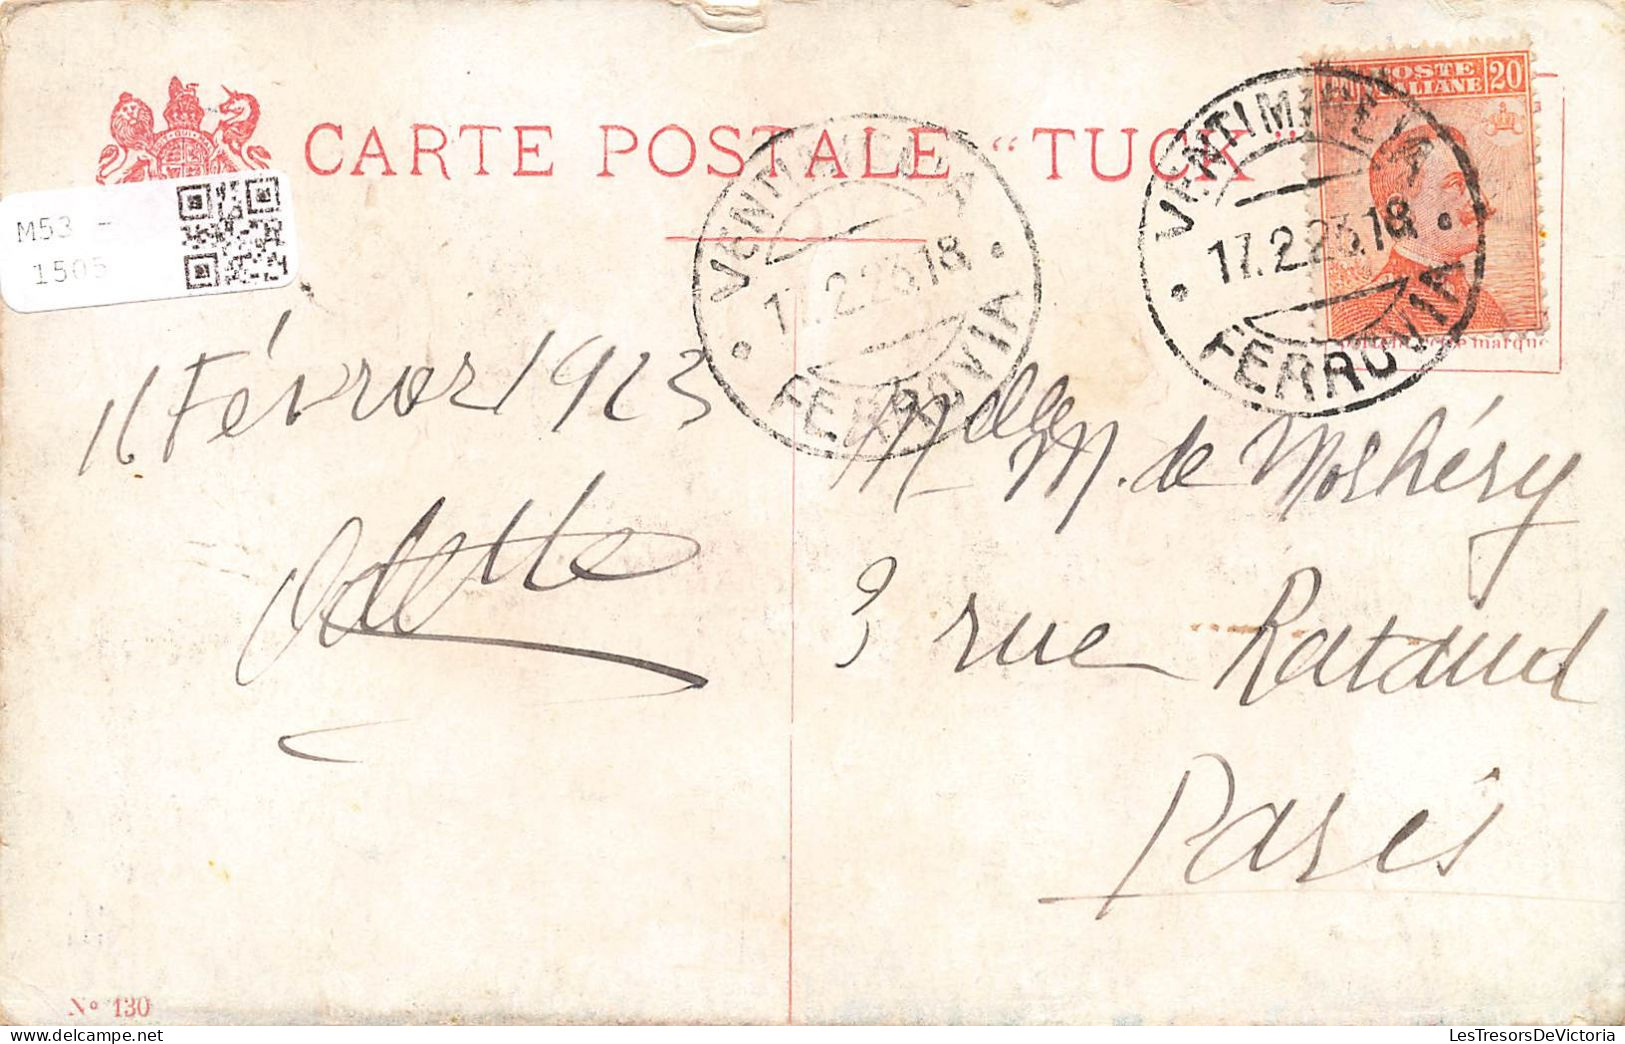 CARTE POSTALE "TUCK"
M53 -
1505
POSTE
ITALIANE
20
VENTIMIGLIA
17.2.23.18
FERROVIA
VENTIMIGLIA
17.2.23.18
FERROVIA
marque
16 Février 1923
Odette
Melle M. de Morhéry
3 rue Rataud
Paris
Nº 130
LesTresorsDeVictoria.com